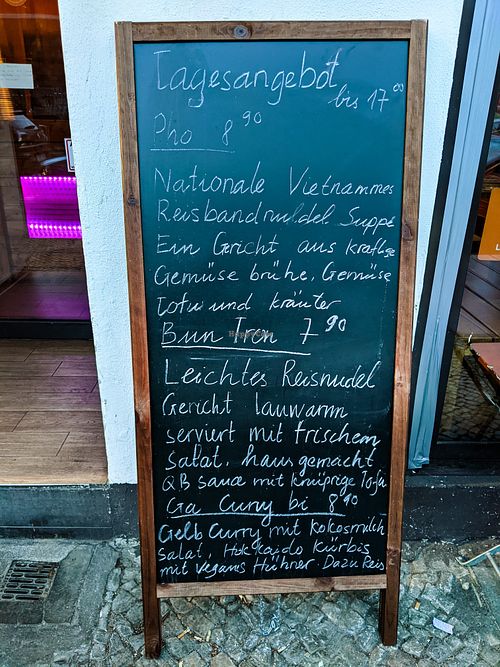 Tagesangebot
bis 17⁰⁰
Pho 8⁹⁰
Nationale Vietnammes
Reisbandnudel Suppe
Ein Gericht aus kraftige
Gemüse brühe, Gemüse
tofu und kräuter
Bun Tron 7⁹⁰
Leichtes Reisnudel
Gericht lauwarm
serviert mit frischem
Salat, hausgemacht
QB sauce mit knuprige tofu
Ga Curry bi 8⁹⁰
Gelb Curry mit Kokosmilch
Salat, Hokkaido Kürbis
mit vegans Hühner. Dazu Reis